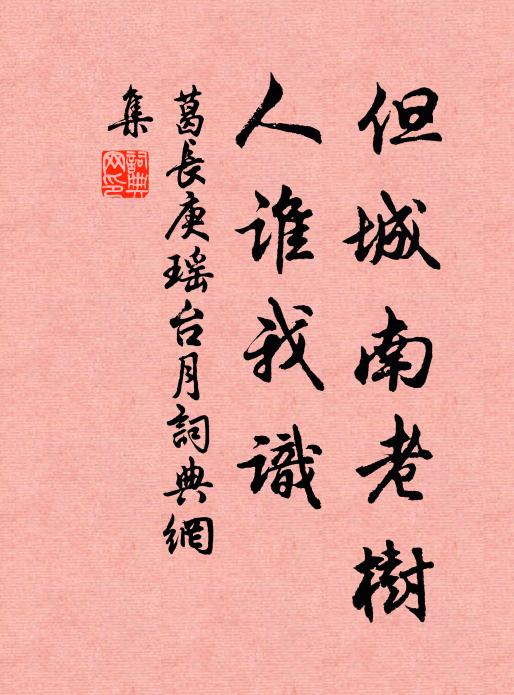 但城南老樹
人誰我識
葛長庚瑶台月詞典網
集
詞典
网印